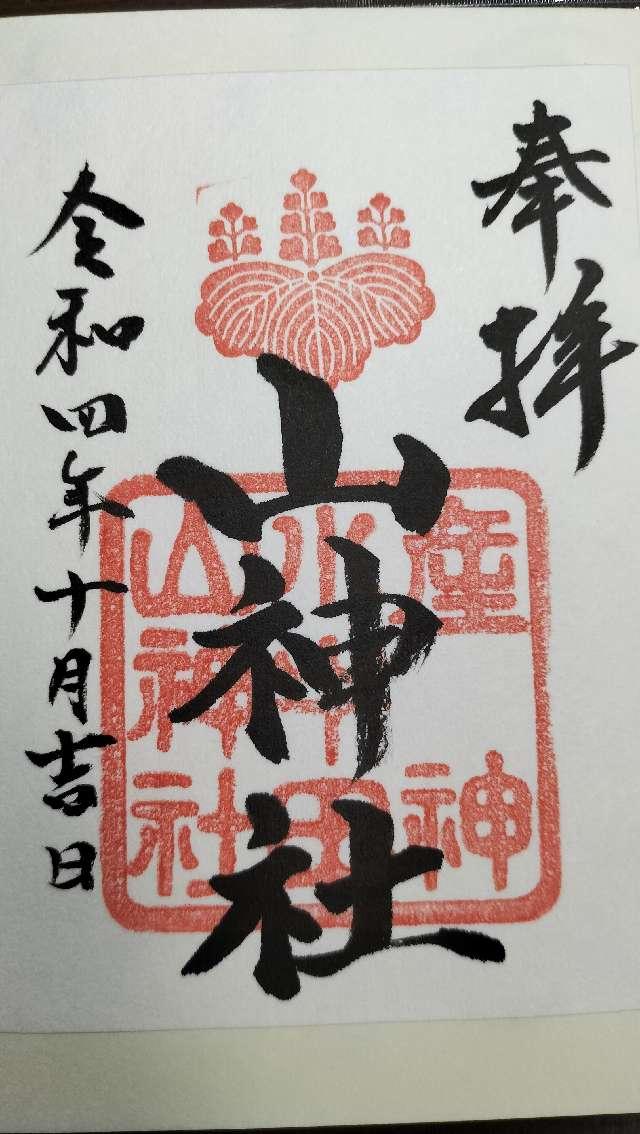 奉拝
山神社
令和四年十月吉日
産神
山神社